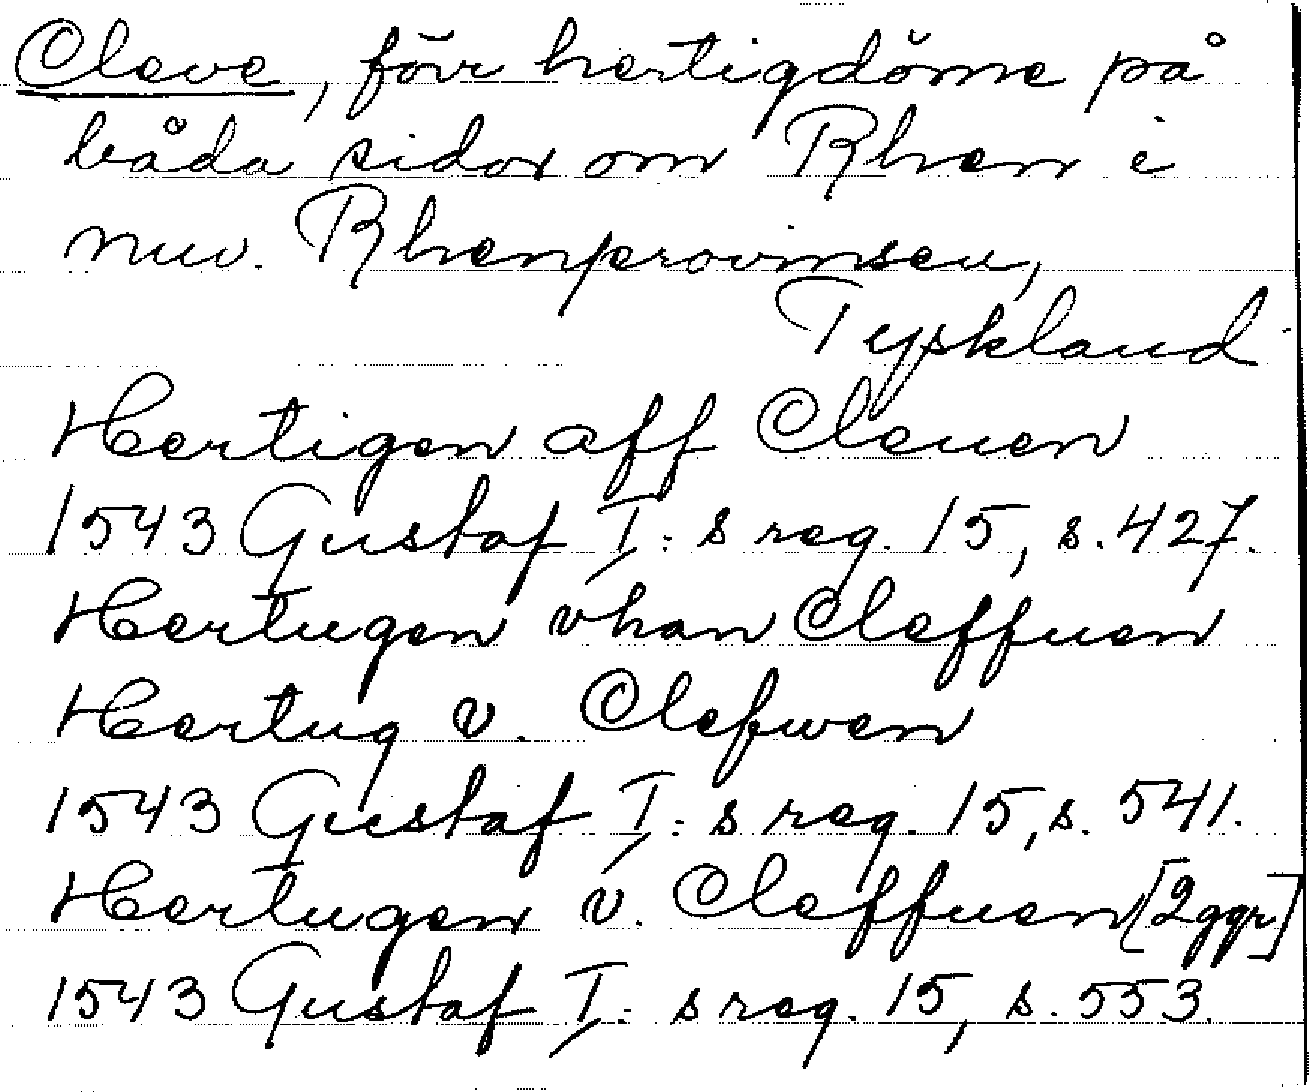 Cleve, förr hertigdöme på
båda sidor om Rhen i
nuv. Rhenprovinsen,
Tyskland
Hertigen aff Cleuen
1543 Gustaf I:s reg. 15, s. 427.
Hertugen vhan Cleffuen
Hertug v. Clefwen
1543 Gustaf I:s reg. 15, s. 541.
Hertugen v. Cleffuen [2 ggr]
1543 Gustaf I:s reg. 15, s. 553.